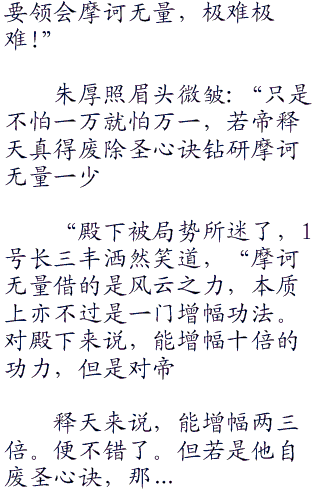 要领会摩诃无量，极难极
难!”
朱厚照眉头微皱：“只是
不怕一万就怕万一，若帝释
天真得废除圣心诀钻研摩诃
无量一少
“殿下被局势所迷了，1
号长三丰洒然笑道，“摩诃
无量借的是风云之力，本质
上亦不过是一门增幅功法。
对殿下来说，能增幅十倍的
功力，但是对帝
释天来说，能增幅两三
倍。便不错了。但若是他自
废圣心诀，那...